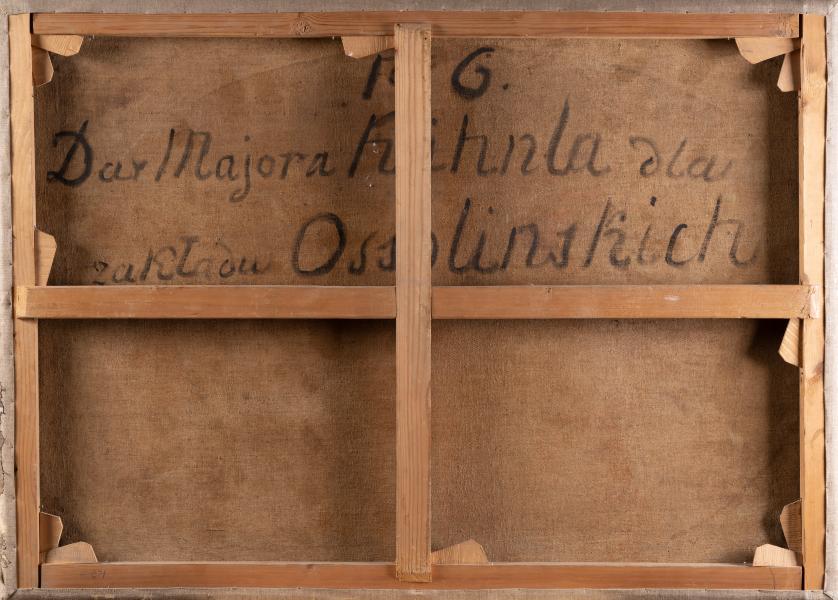 6.
Dar Majora Kühnla dla
zakładu Ossolinskich